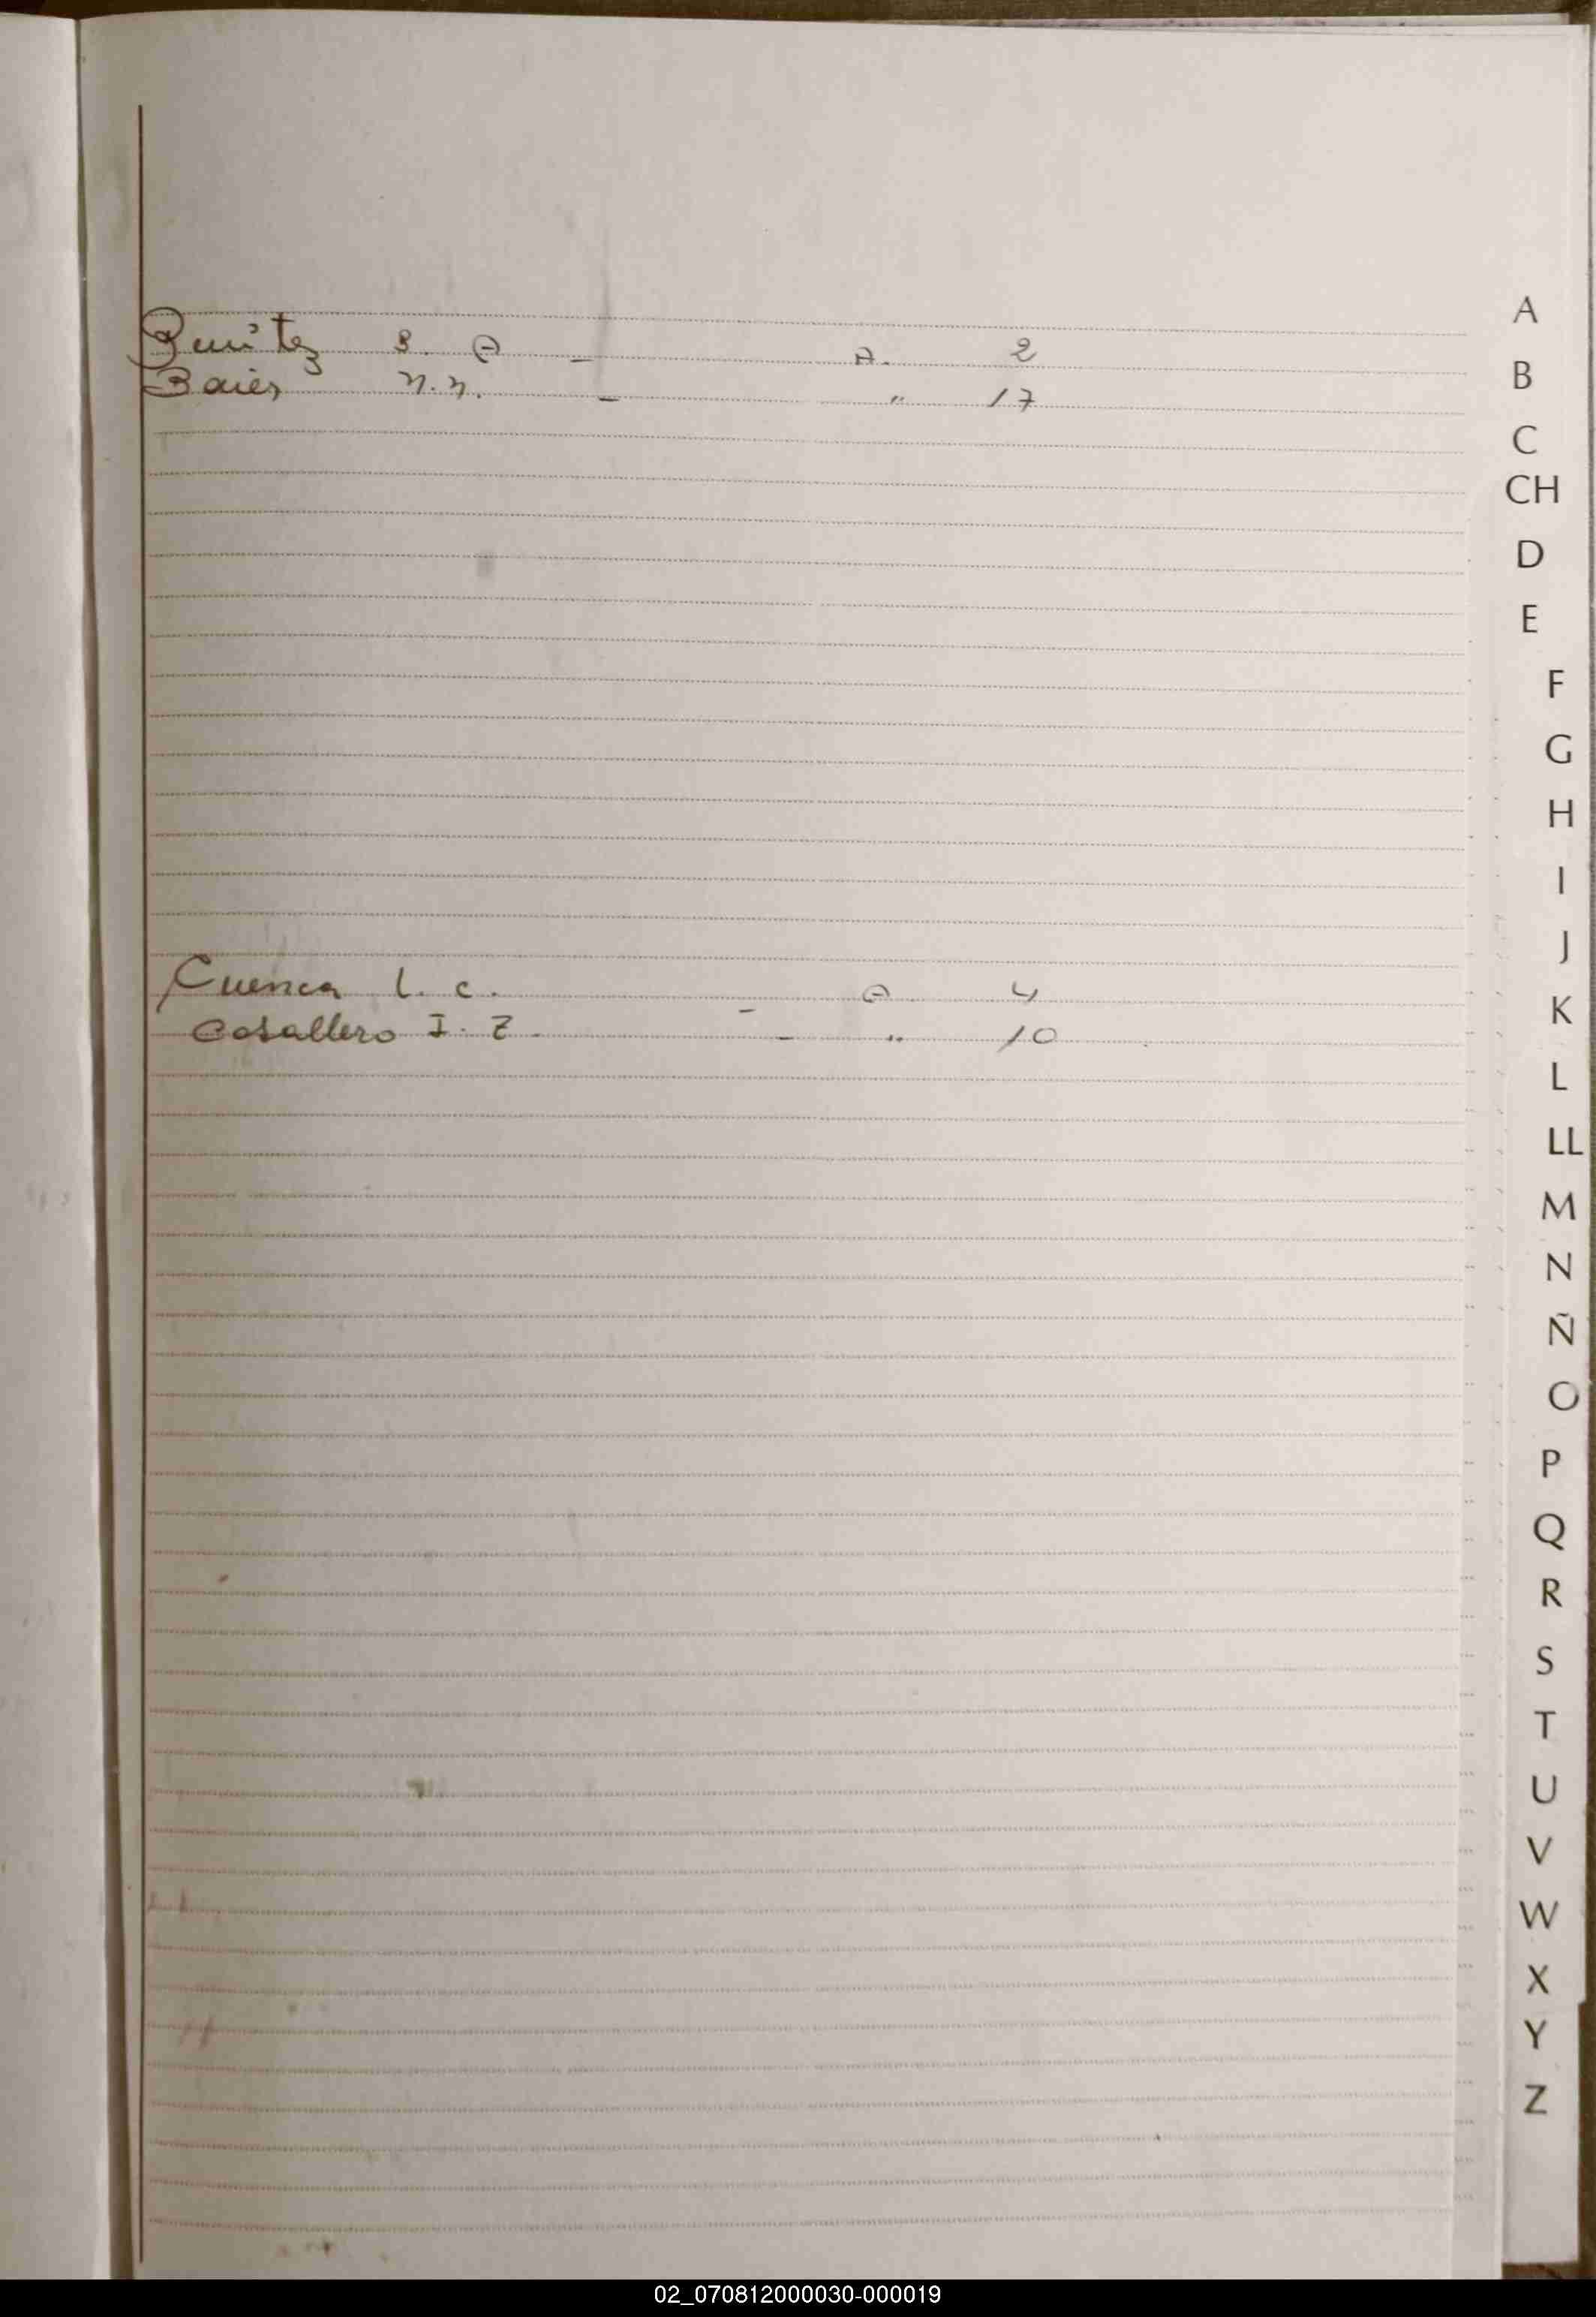 Benitez B. A - A. 2
Baier n.n. - " 17
Cuenca L. C. - A 4
Caballero I. Z. - " 10
A
B
C
CH
D
E
F
G
H
I
J
K
L
LL
M
N
Ñ
O
P
Q
R
S
T
U
V
W
X
Y
Z
02_070812000030-000019